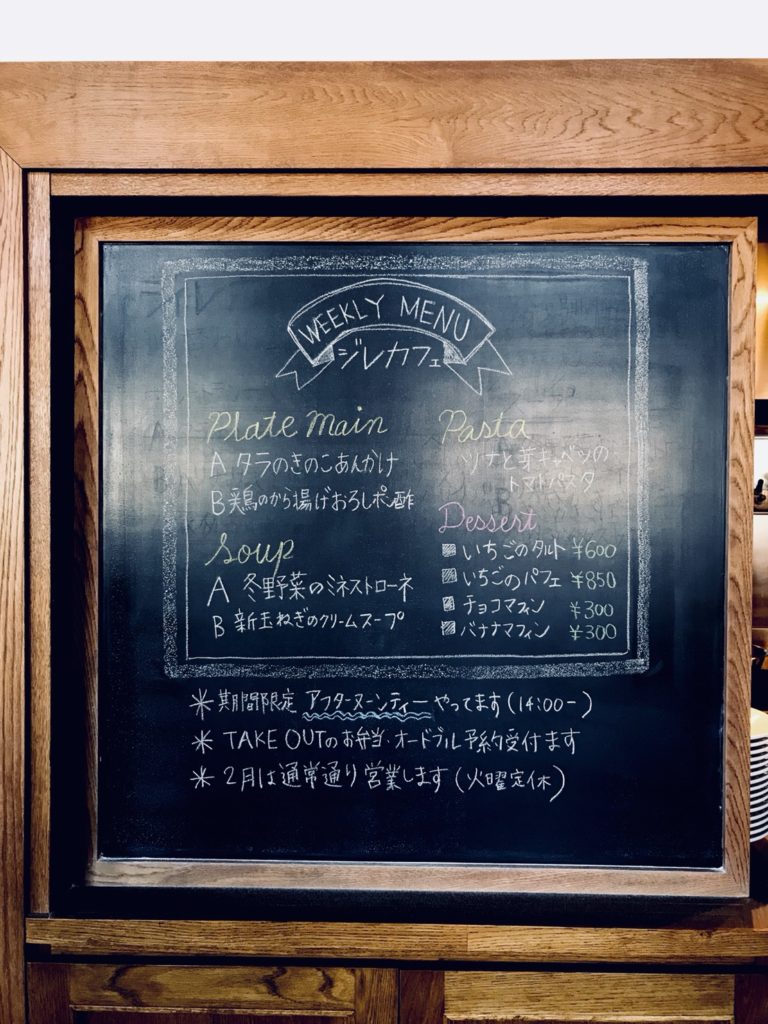 WEEKLY MENU
ジレカフェ
Plate Main
A タラのきのこあんかけ
B 鶏のから揚げおろしポン酢
Soup
A 冬野菜のミネストローネ
B 新玉ねぎのクリームスープ
Pasta
ツナと芽キャベツの
トマトパスタ
Dessert
いちごのタルト ¥600
いちごのパフェ ¥850
チョコマフィン ¥300
バナナマフィン ¥300
＊期間限定 アフターヌーンティーやってます(14:00-)
＊TAKE OUTのお弁当・オードブル予約受付ます
＊2月は通常通り営業します(火曜定休)